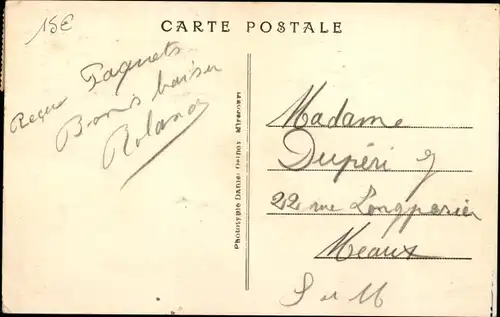 CARTE POSTALE
15E
Reçu Paquets
Bons baiser
Roland
Phototypie Daniel Delboy, Mirecourt
Madame
Dupéri
22 rue Longperier
Meaux
S et M